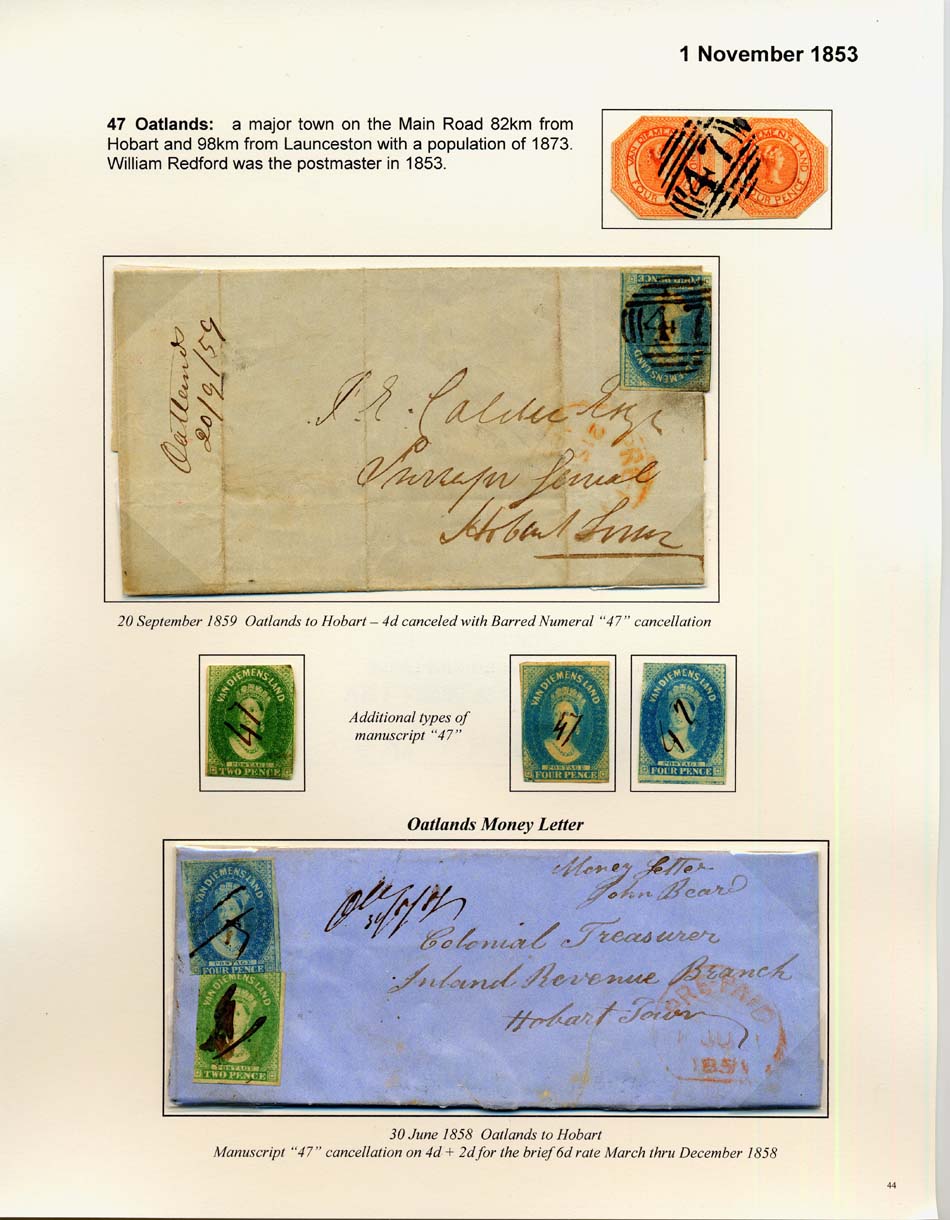 1 November 1853
47 Oatlands: a major town on the Main Road 82km from
Hobart and 98km from Launceston with a population of 1873.
William Redford was the postmaster in 1853.
VAN DIEMENS LAND
FOUR PENCE
47
Oatlands
20/9/59
47
DIEMENS LAND
Esqr
Hobart Town
20 September 1859 Oatlands to Hobart – 4d canceled with Barred Numeral “47” cancellation
VAN DIEMENS LAND
47
POSTAGE
TWO PENCE
Additional types of
manuscript “47”
VAN DIEMENS LAND
47
POSTAGE
FOUR PENCE
VAN DIEMENS LAND
47
POSTAGE
FOUR PENCE
Oatlands Money Letter
VAN DIEMENS LAND
POSTAGE
FOUR PENCE
VAN DIEMENS LAND
POSTAGE
TWO PENCE
Money Letter
John Beard
Colonial Treasurer
Inland Revenue Branch
Hobart Town
PREPAID
30 June 1858 Oatlands to Hobart
Manuscript “47” cancellation on 4d + 2d for the brief 6d rate March thru December 1858
44